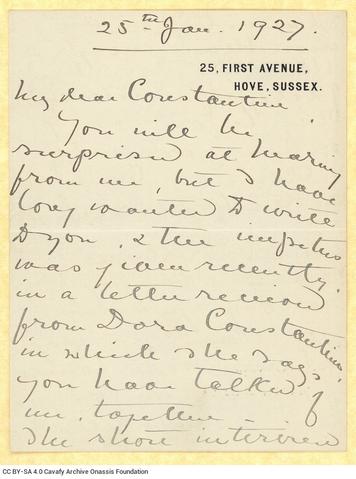 25th Jan. 1927.
25, FIRST AVENUE,
HOVE, SUSSEX.
My dear Constantine
You will be
surprised at hearing
from me, but I have
long wanted to write
to you, & the impetus
was given recently
in a letter received
from Dora Constantinides,
in which she says
you have talked of
me, together –
The short interview
CC BY-SA 4.0 Cavafy Archive Onassis Foundation